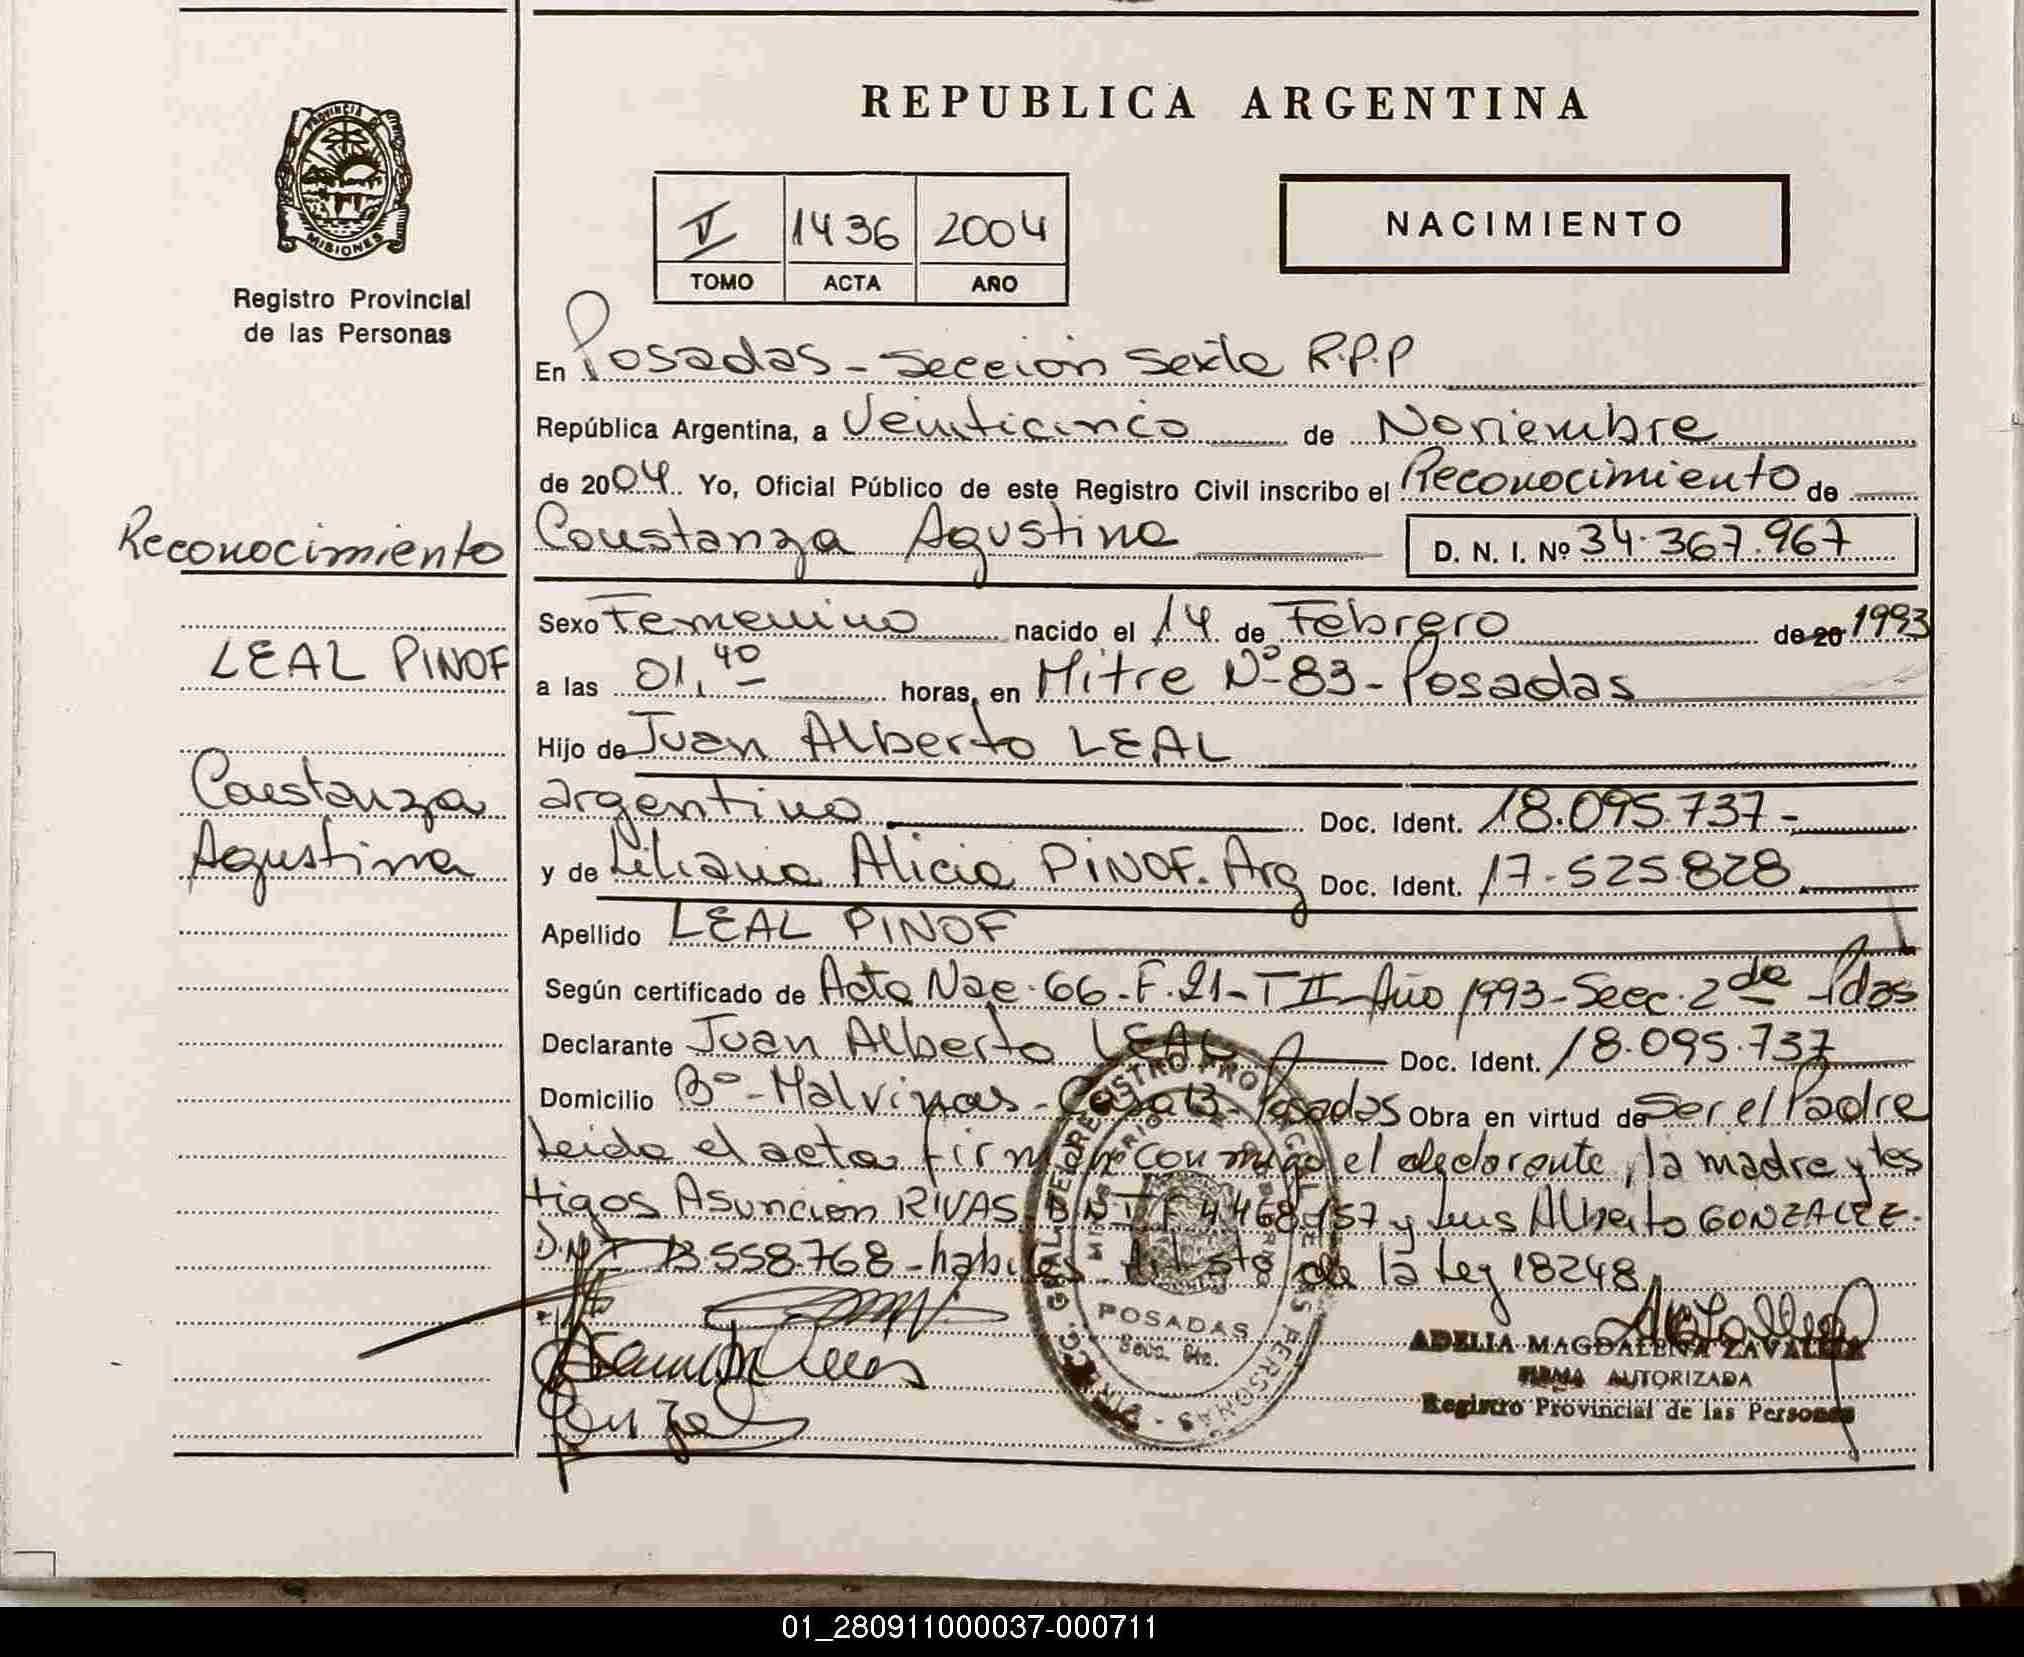 REPUBLICA ARGENTINA
PROVINCIA DE
MISIONES
Registro Provincial
de las Personas
V 1436 2004
TOMO ACTA AÑO
NACIMIENTO
En Posadas - Sección Sexta R.P.P
República Argentina, a Veinticinco de Noviembre
de 2004. Yo, Oficial Público de este Registro Civil inscribo el Reconocimiento de
Constanza Agustina D. N. I. Nº 34.367.967
Reconocimiento
LEAL PINOF
Constanza
Agustina
Sexo Femenino nacido el 14 de Febrero de 20 1993
a las 01,40 horas, en Mitre Nº 83 - Posadas
Hijo de Juan Alberto LEAL
argentino Doc. Ident. 18.095.737-
y de Liliana Alicia PINOF. Arg Doc. Ident. 17.525.828
Apellido LEAL PINOF
Según certificado de Acta Nac. 66-F.21-T II-Año 1993-Secc. 2da Pdas
Declarante Juan Alberto LEAL Doc. Ident. 18.095.737
Domicilio Bº-Malvinas-Casa 13-Posadas Obra en virtud de Ser el Padre
Leida el acta firman conmigo el declarante, la madre y tes
tigos Asunción RIVAS DNI F 4468.157 y Luis Alberto GONZALEZ.
D.N.I 13.558.768 - habiles de la Ley 18248
POSADAS
Secc. 6ta.
ADELIA MAGDALENA ZAVALLA
FIRMA AUTORIZADA
Registro Provincial de las Personas
01_280911000037-000711